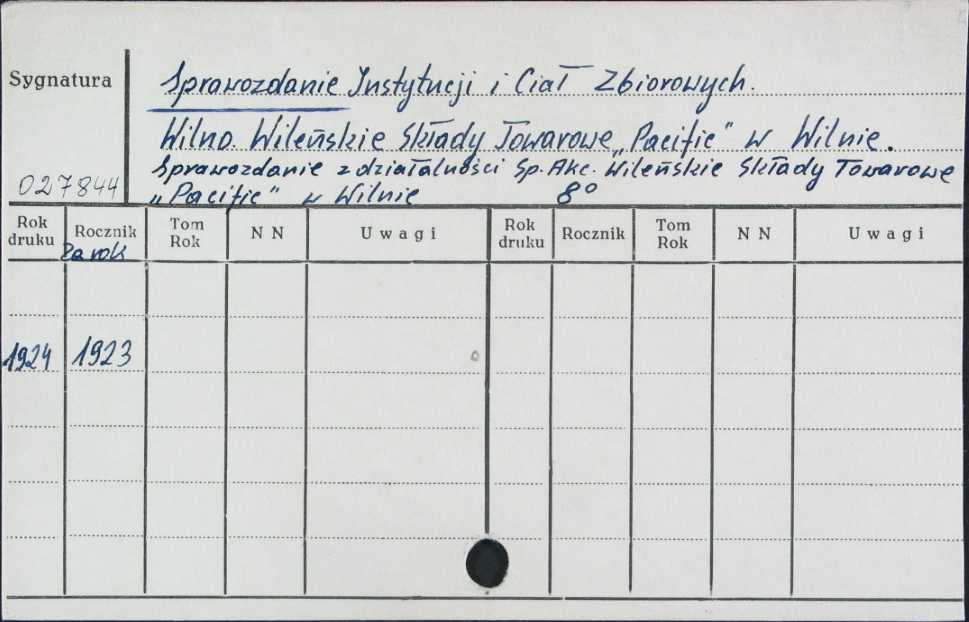 Sygnatura
Sprawozdanie Instytucji i Ciał Zbiorowych.
Wilno. Wileńskie Składy Towarowe „Pacific" w Wilnie.
Sprawozdanie z działalności Sp. Akc. Wileńskie Składy Towarowe
027844 „Pacific" w Wilnie 8°
Rok druku Rocznik Tom Rok N N Uwagi Rok druku Rocznik Tom Rok N N Uwagi
Za rok
1924 1923